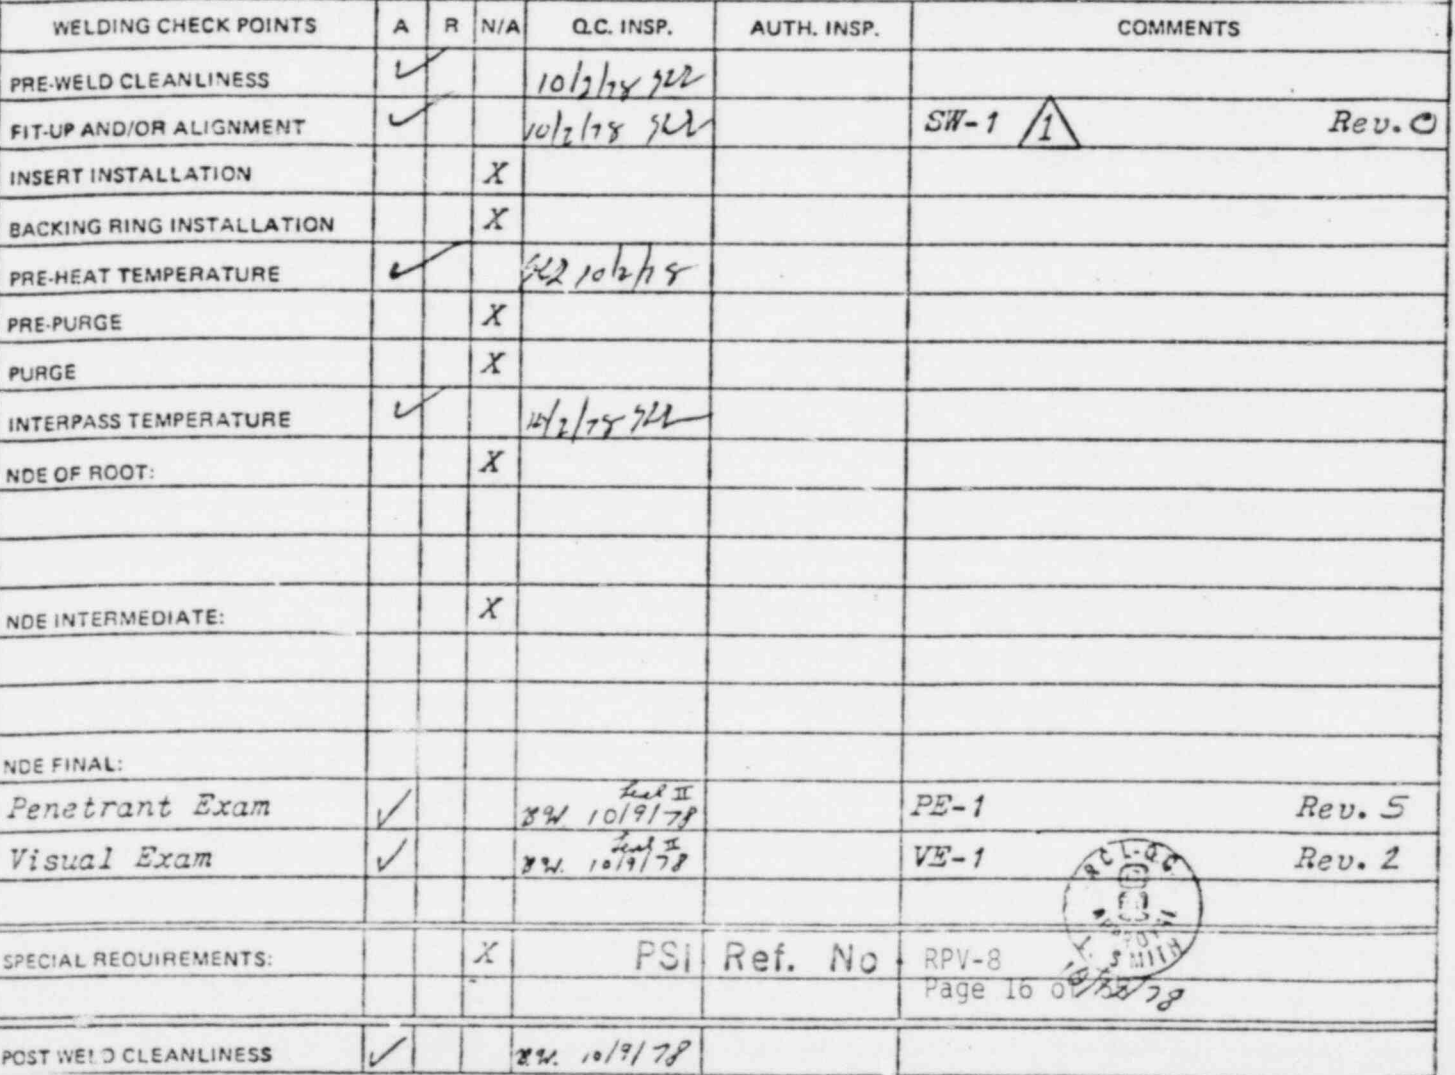 WELDING CHECK POINTS A R N/A Q.C. INSP. AUTH. INSP. COMMENTS
PRE-WELD CLEANLINESS ✓ 10/2/78
FIT-UP AND/OR ALIGNMENT ✓ 10/2/78 SW-1 1 Rev. 0
INSERT INSTALLATION X
BACKING RING INSTALLATION X
PRE-HEAT TEMPERATURE ✓ 10/2/78
PRE-PURGE X
PURGE X
INTERPASS TEMPERATURE ✓ 10/2/78
NDE OF ROOT: X
NDE INTERMEDIATE: X
NDE FINAL:
Penetrant Exam ✓ II 10/9/78 PE-1 Rev. 5
Visual Exam ✓ II 10/9/78 VE-1 Rev. 2
RCL-Q.C.
SMITH
SPECIAL REQUIREMENTS: X PSI Ref. No. RPV-8
Page 16 of
POST WELD CLEANLINESS ✓ 10/9/78